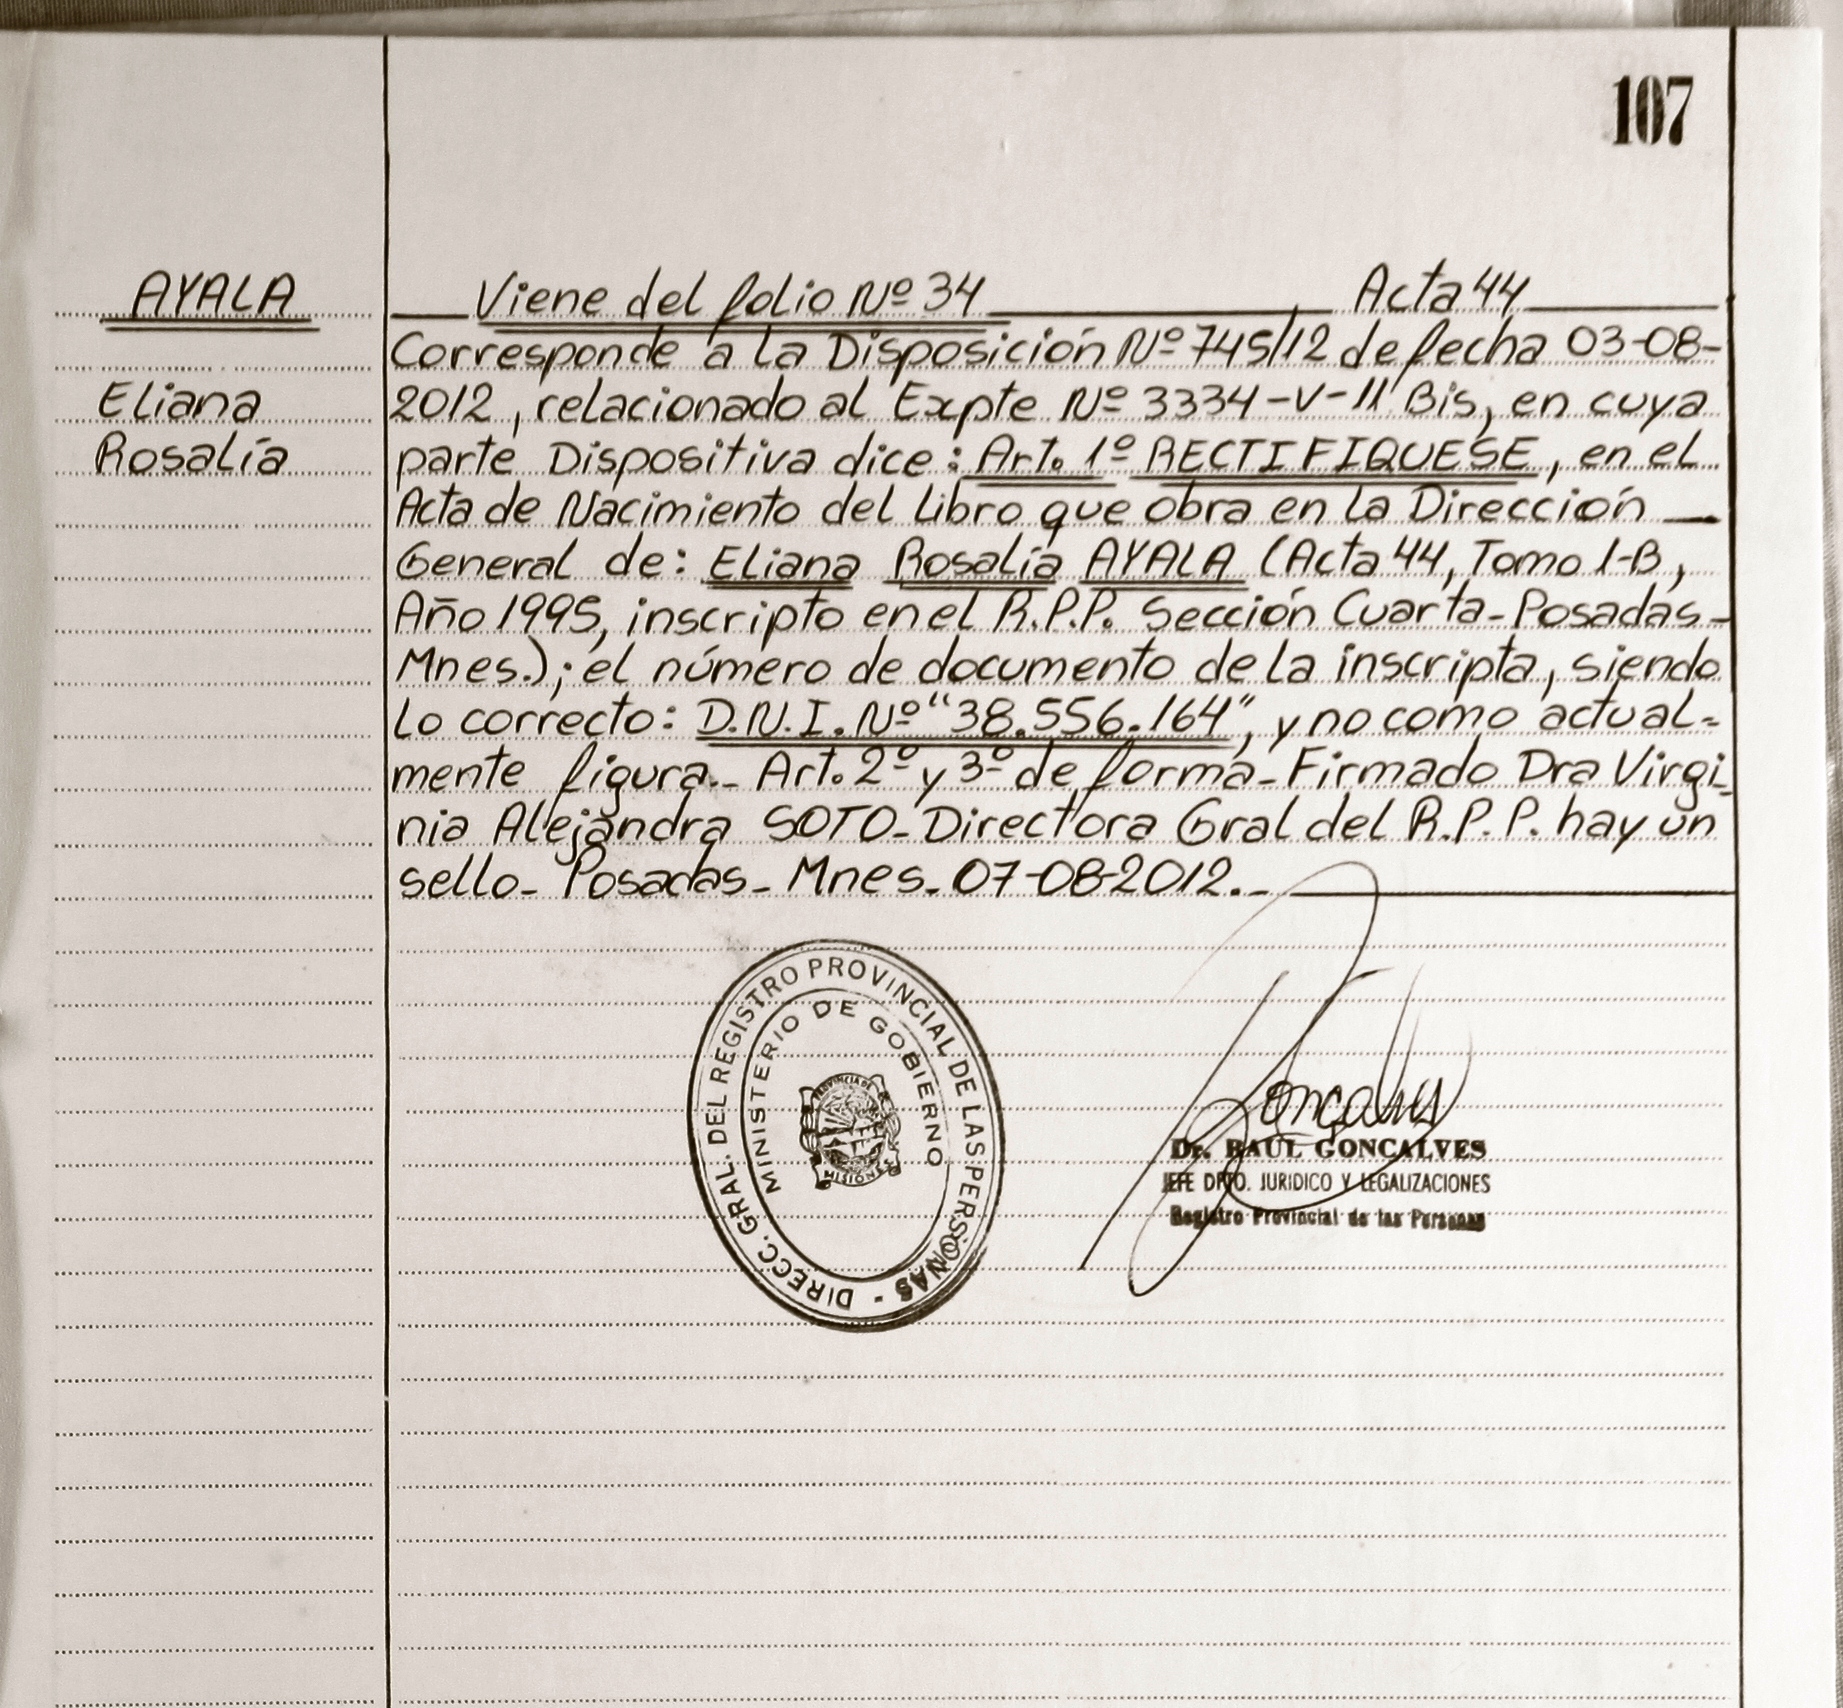 107
AYALA
Eliana
Rosalía
Viene del folio Nº 34 Acta 44
Corresponde a la Disposición Nº 745/12 de fecha 03-08-
2012, relacionado al Expte Nº 3334-V-11 Bis, en cuya
parte Dispositiva dice: Art. 1º RECTIFIQUESE, en el
Acta de Nacimiento del Libro que obra en la Dirección
General de: Eliana Rosalía AYALA (Acta 44, Tomo 1-B,
Año 1995, inscripto en el R.P.P. Sección Cuarta-Posadas-
Mnes.); el número de documento de la inscripta, siendo
lo correcto: D.N.I. Nº "38.556.164", y no como actual-
mente figura.- Art. 2º y 3º de forma-Firmado Dra Virgi-
nia Alejandra SOTO-Directora Gral del R.P.P. hay un
sello- Posadas- Mnes- 07-08-2012.-
DIRECC. GRAL. DEL REGISTRO PROVINCIAL DE LAS PERSONAS -
MINISTERIO DE GOBIERNO
PROVINCIA DE
MISIONES
Goncalves
Dr. RAUL GONCALVES
JEFE DPTO. JURIDICO Y LEGALIZACIONES
Registro Provincial de las Personas